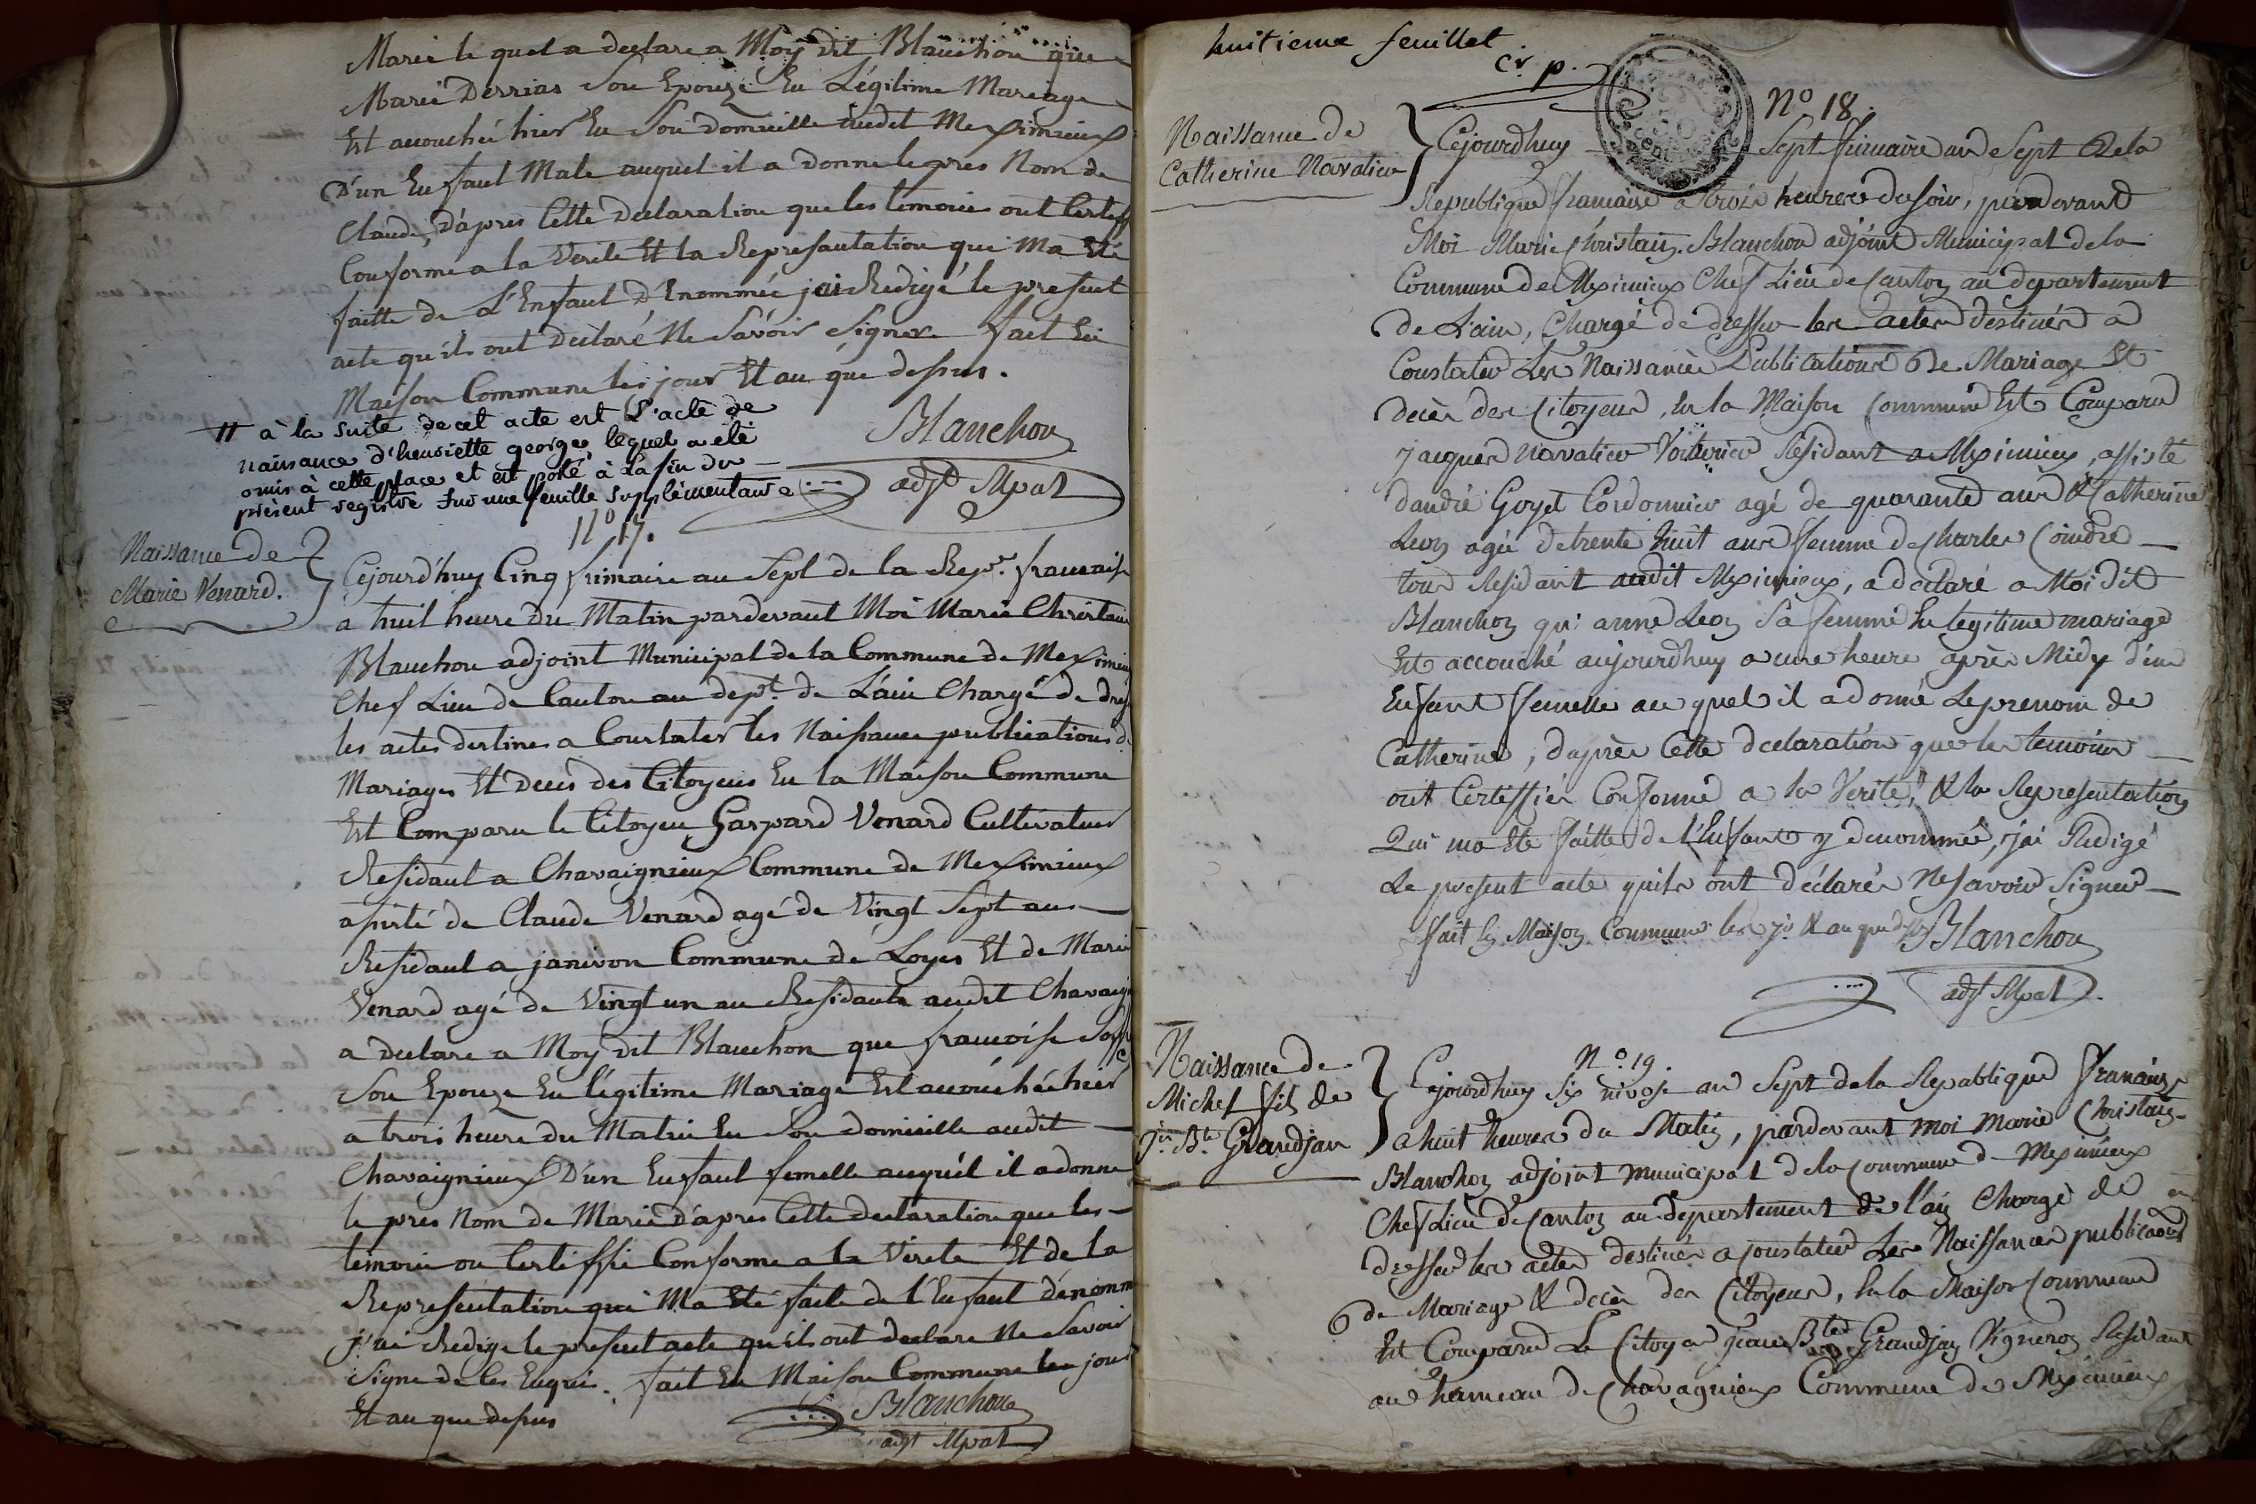 Marie le quel a declare a Moy dit Blanchon que
Marie Derrias Son Epouze En Légitime Mariage
Est accouchée hier En Son domicille audit Meximieux
D'un Enfant Male auquel il a donne le pres Nom de
Claude, D'apres Cette declaration que les temoins ont Certiff
Conforme a la Verite Et la Represantation qui Ma Eté
faitte de L'Enfant D Enommée jai Redigé le present
acte qu'ils ont déclaré Ne Savoir Signer fait En
Maison Commune les jour Et an que dessus.
Blanchon
adjt Mpal
# à la suite de cet acte est L'acte de
naissance d'henriette george, lequel a été
omis à cette place et est porté à la fin du
présent registre sur une feuille supplémentaire
No 17.
Naissance de
Marie Venard.
Cejourd'huy Cinq frimaire an Sept de la Rep.e francaise
a huit heure du Matin pardevant Moi Marie Christain
Blanchon adjoint Municipal de la Commune de Meximieux
Chef Lieu de Canton au dept. de L'ain Chargé de dress
les actes destines a Constater les Naissance publications d.
Mariages Et deces des Citoyens En la Maison Commune
Est Comparu le Citoyen Gaspard Venard Cultivateur
Residant a Chavaignieux Commune de Meximieux
assisté de Claude Venard agé de Vingt Sept ans
Residant a janivon Commune de Loyes Et de Marie
Venard agé de Vingt un an Residante audit Chavaig
a declare a Moy dit Blanchon que francoise
Son Epouze En légitime Mariage Est accouchée hier
a trois heure du Matin En Son domicille audit
Chavaignieux D'un Enfant femelle auquel il a donne
le pres Nom de Marie D'apres Cette declaration que les
temoin on Certiffie Conforme a la Verite Et de la
Represéntation qui Ma Eté faite de l'Enfant dénomm
j'ai Redige le present acte qu'ils ont declare Ne Savoir
Signe de les Enqui. fait En Maison Commune les jour
Et an que dessus
Blanchon
adjt Mpal
huitieme feuillet
No 18.
Naissance de
Catherine Navatier
Cejourdhuy Sept frimaire an Sept de la
Republique francaise a trois heures du soir, pardevant
Moi Marie Christain Blanchon adjoint Municipal de la
Commune de Meximieux Chef Lieu de Canton au departement
de L'ain, Chargé de dresser les actes destinés a
Constater Les Naissances Publications de Mariage Et
decès des Citoyens, En la Maison Commune Est Comparu
jacques Navatier Voiturier Résidant a Meximieux, assisté
dandré Goyet Cordonnier agé de quarante ans & Catherine
Leon agée de trente huit ans femme de Charles Coindre
tous Residant audit Meximieux, a declaré a Moi dit
Blanchon qu'anne Leon Sa femme En legitime mariage
Est accouché aujourdhuy a une heure après Midy d'un
Enfant femelle au quel il a donné Le prenom de
Catherine, daprès Cette declaration que les temoins
ont Certiffiés Conforme a la Verité, & la Representation
Qui ma Ete faitte de l'Enfant y denommé, j'ai Redigé
Le present acte quils ont déclarés Ne savoir Signer
fait En Maison Commune les jr & an que d.
Blanchon
adjt Mpal.
No. 19.
Naissance de
Michel fils de
jn. Bte. Grandjan
Cejourdhuy Six nivose an Sept de la Republique francaise
a huit heures du Matin, pardevant moi Marie Christain
Blanchon adjoint municipal de la Commune de Meximieux
Chef lieu de Canton au departement de l'ain Chargé de
dresser les actes destinés a constater Les Naissances publicaons
de Mariage & decès des Citoyens, En la Maison Commune
Est Comparu Le Citoyen jean Bte Grandjan Vigneron Residant
au hameau de Chavagnieux Commune de Meximieux